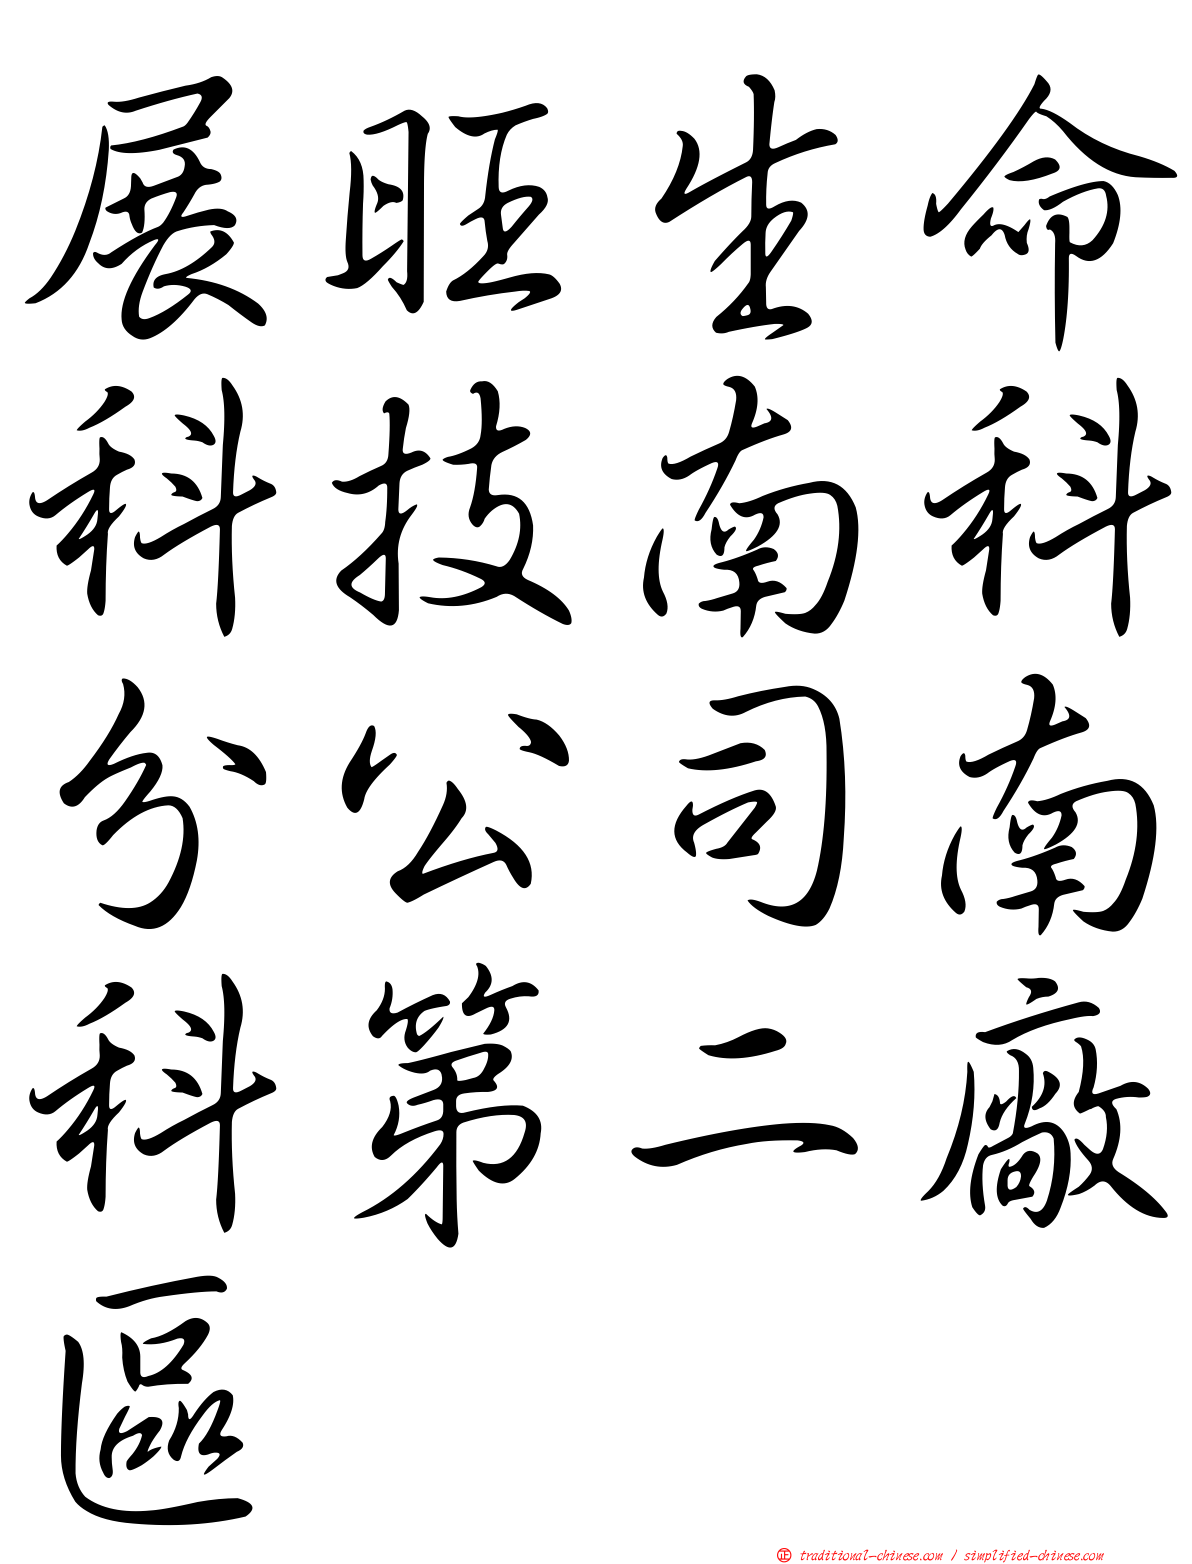 展旺生命
科技南科
分公司南
科第二廠
區
正 traditional-chinese.com / simplified-chinese.com